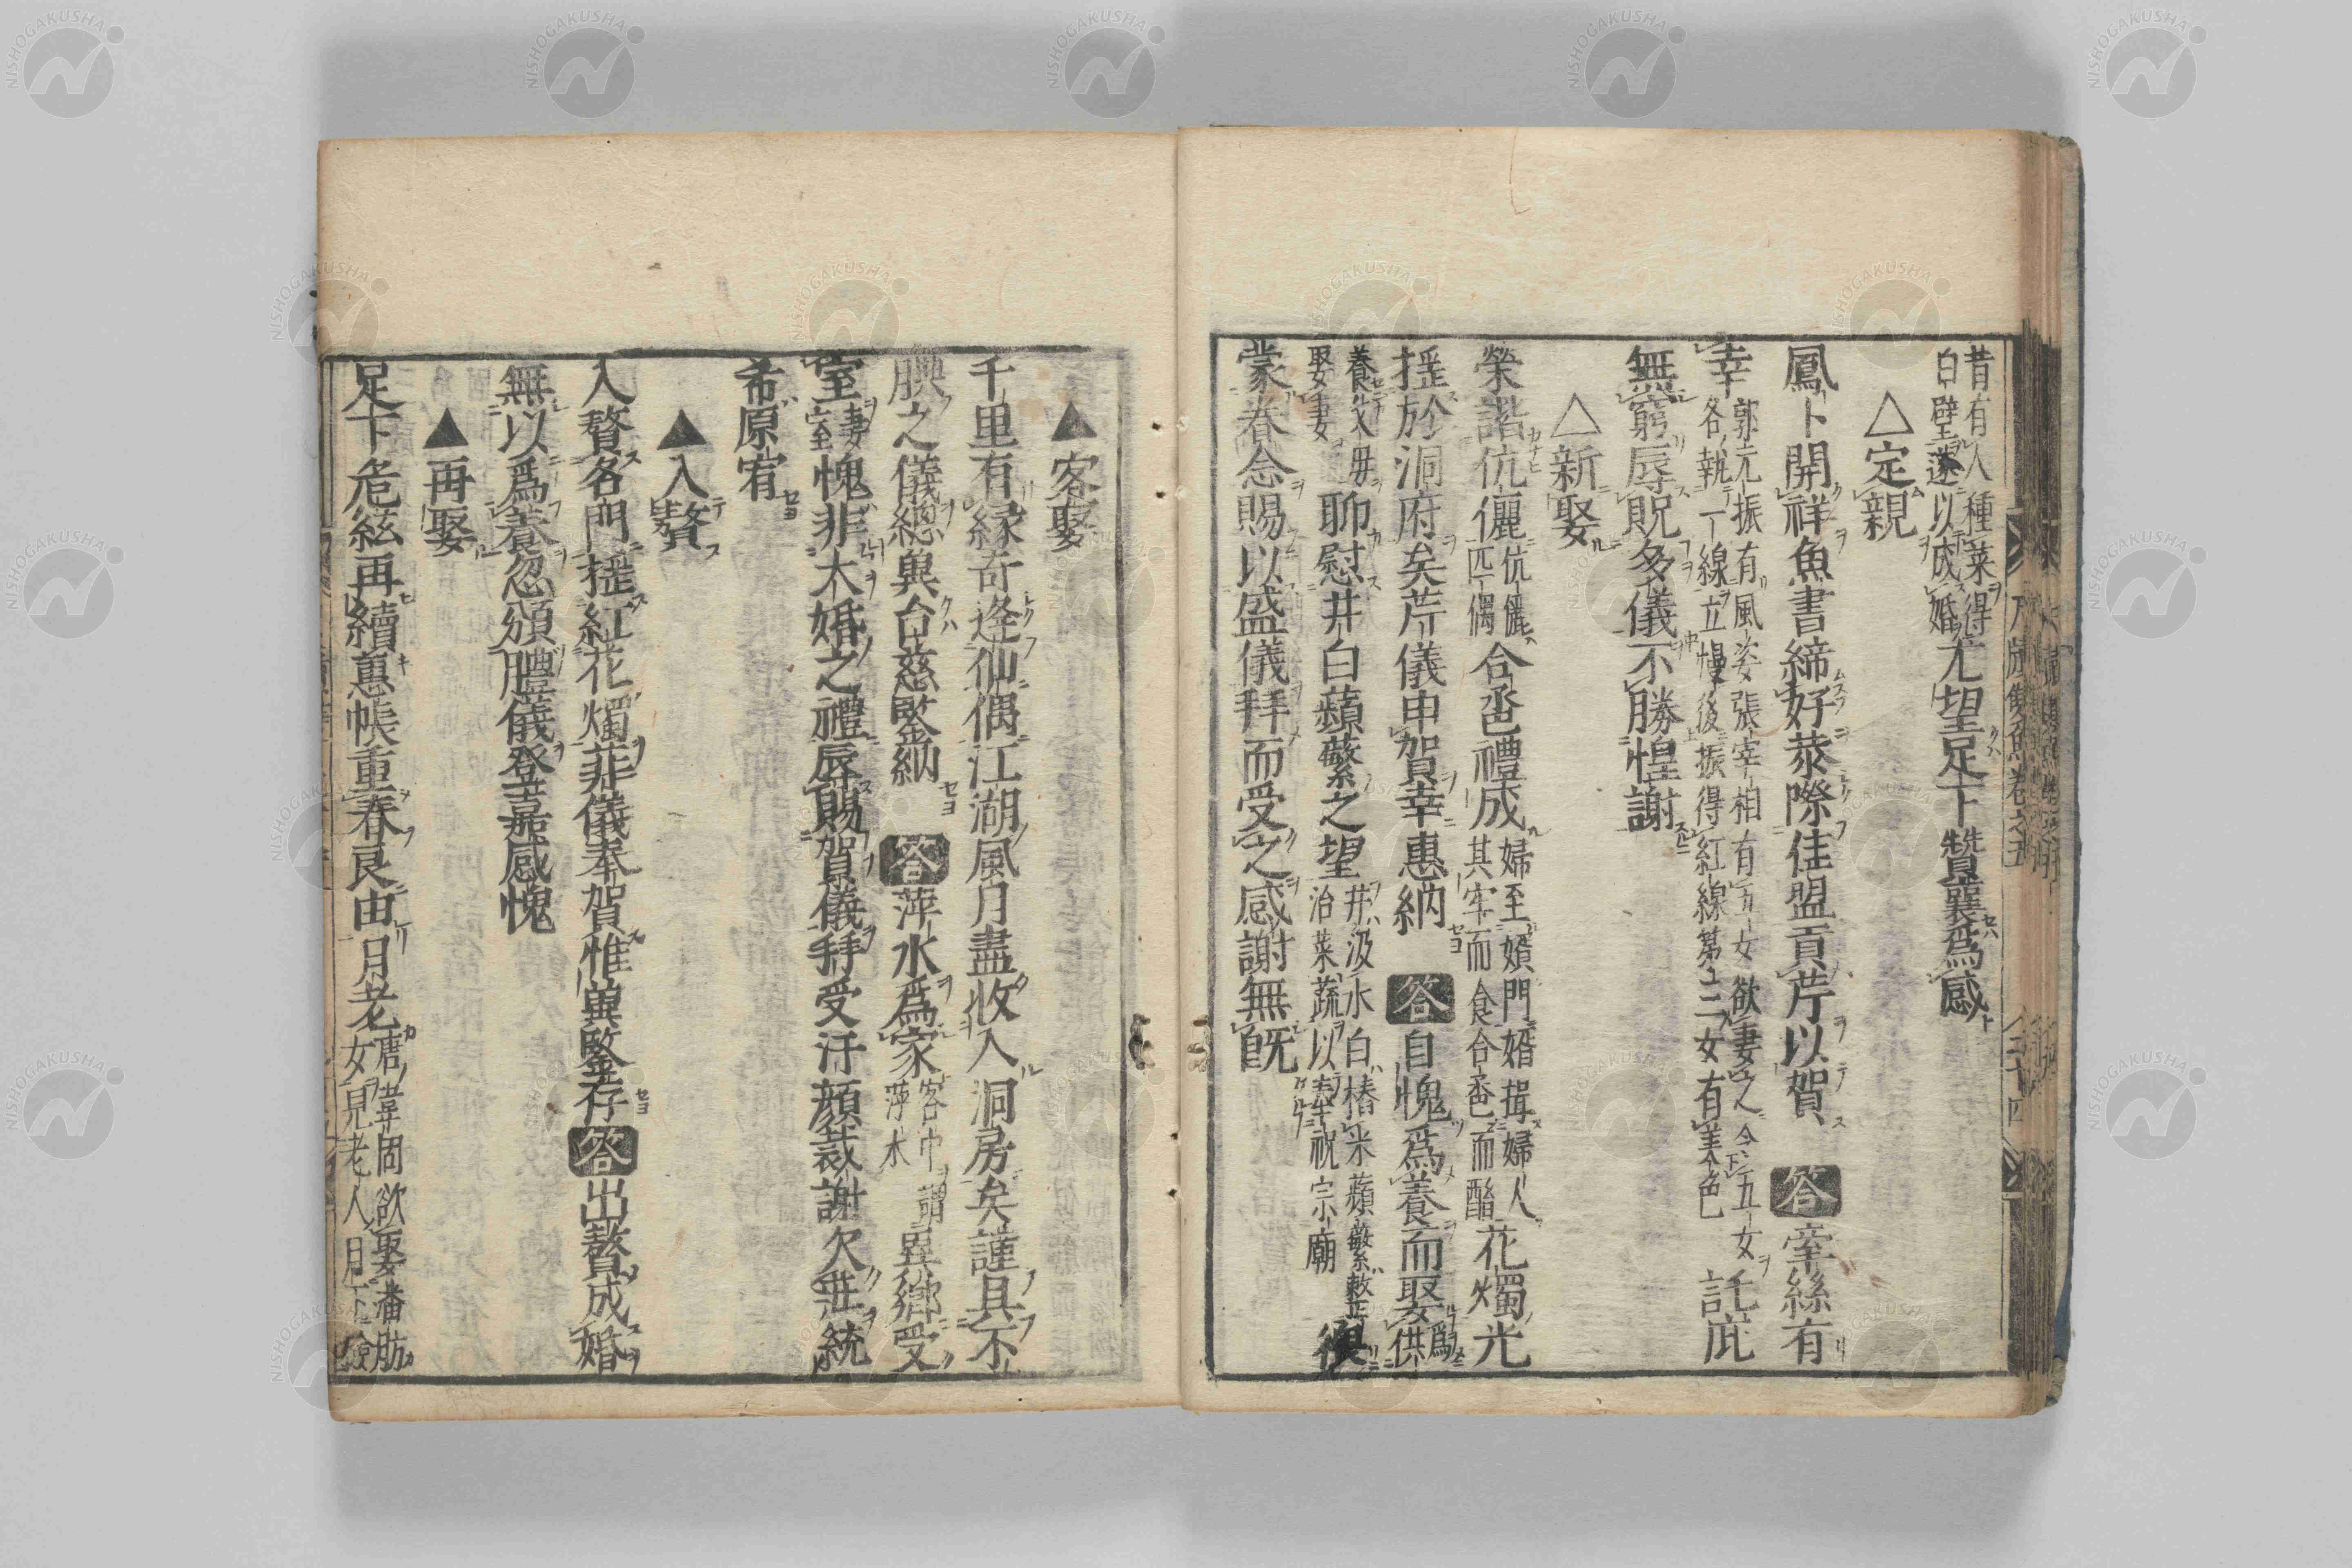 昔有人種菜得
白璧遂以成婚尤望足下贊襄爲感
△定親
鳳卜開祥魚書締好恭際佳盟貢芹以賀 答 牽絲有
幸郭元振有風姿張宰相有五女欲妻之令五女
各執一線立幔後振得紅線第三女有美色託庇
無窮辱貺多儀不勝惶謝
△新娶
榮諧伉儷伉儷匹偶合卺禮成婦至婿門婿揖婦人其牢而食合卺而酳花燭光
搖於洞府矣芹儀申賀幸惠納 答 自愧爲養而娶爲供
養父毋娶妻聊慰井臼蘋蘩之望井汲水臼樁米蘋蘩治菜蔬以奉祝宗廟
蒙春念賜以盛儀拜而受之感謝無旣
▲客娶
千里有緣奇逢仙偶江湖風月盡收入洞房矣謹具不
腆之儀總與台慈鍳納 答 萍水爲家客中萍水謂異鄉受
室妻室愧非大婚之禮辱賜賀儀拜受汗顔裁謝欠莊統
希原宥
▲入贅
入贅名門搖紅花燭菲儀奉賀惟兾鍳存 答 出贅成婚
無以爲養忽頒禮儀登嘉感愧
▲再娶
足下危絃再續蕙帳重春良由月老唐韋固欲娶潘肪
女見老人月下
NISHOGAKUSHA